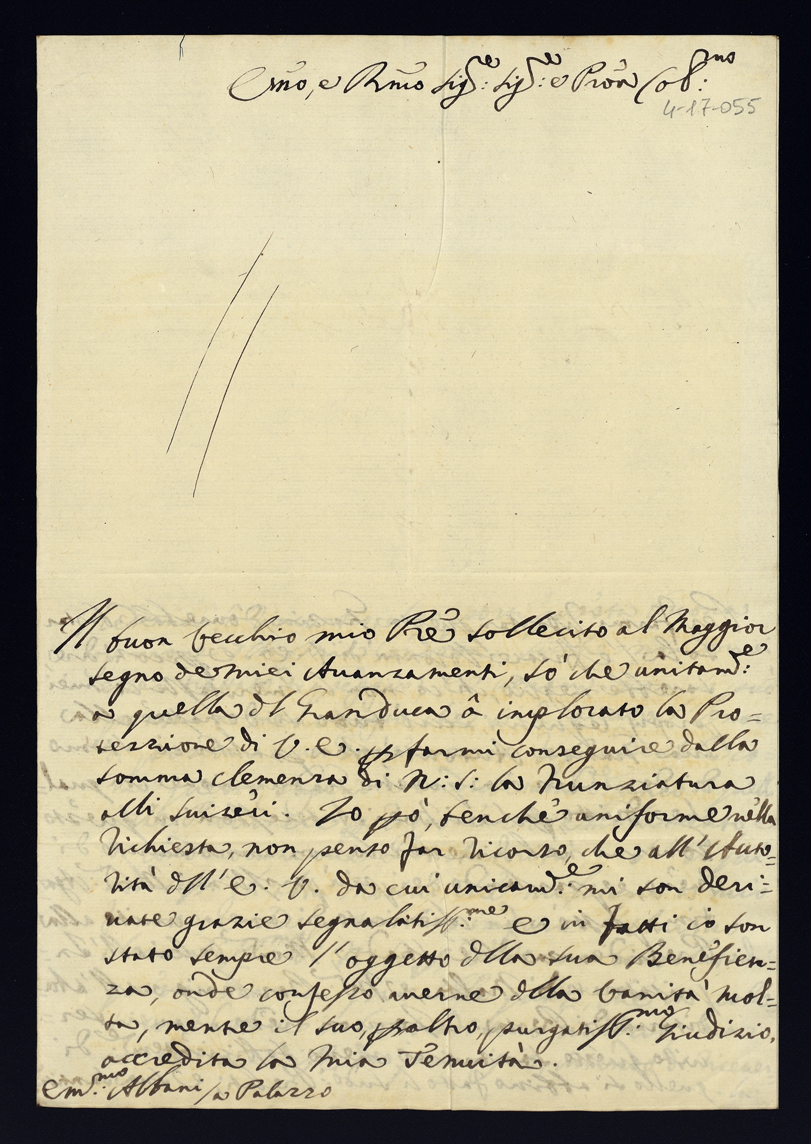 Em̃o, e Rm̃o Sig.re: Sig.re: e Pròn Col.mo:
4-17-055
Il buon Vecchio mio Prẽ sollecito al Maggior
segno de miei Avanzamenti, sò che unitam.e:
a quella dl Granduca â implorato la Pro=
tezzione di V. E. p farmi conseguire dalla
somma clemenza di N: S: la Nunziatura
alli Suizèri. Io pò, benchè uniforme nella
Richiesta, non penso far ricorso, che all'Auto=
rità dll'E. V. da cui unicam.e: mi son deri=
vate grazie segnalatiss.me e in fatti io son
stato sempre l'oggetto dlla sua Beneficen=
za, onde confesso averne dlla Vanità mol=
ta, mentre il suo, p altro, purgatiss.mo Giudizio,
accredita la mia Tenuità.
Em.mo: Albani / a Palazzo